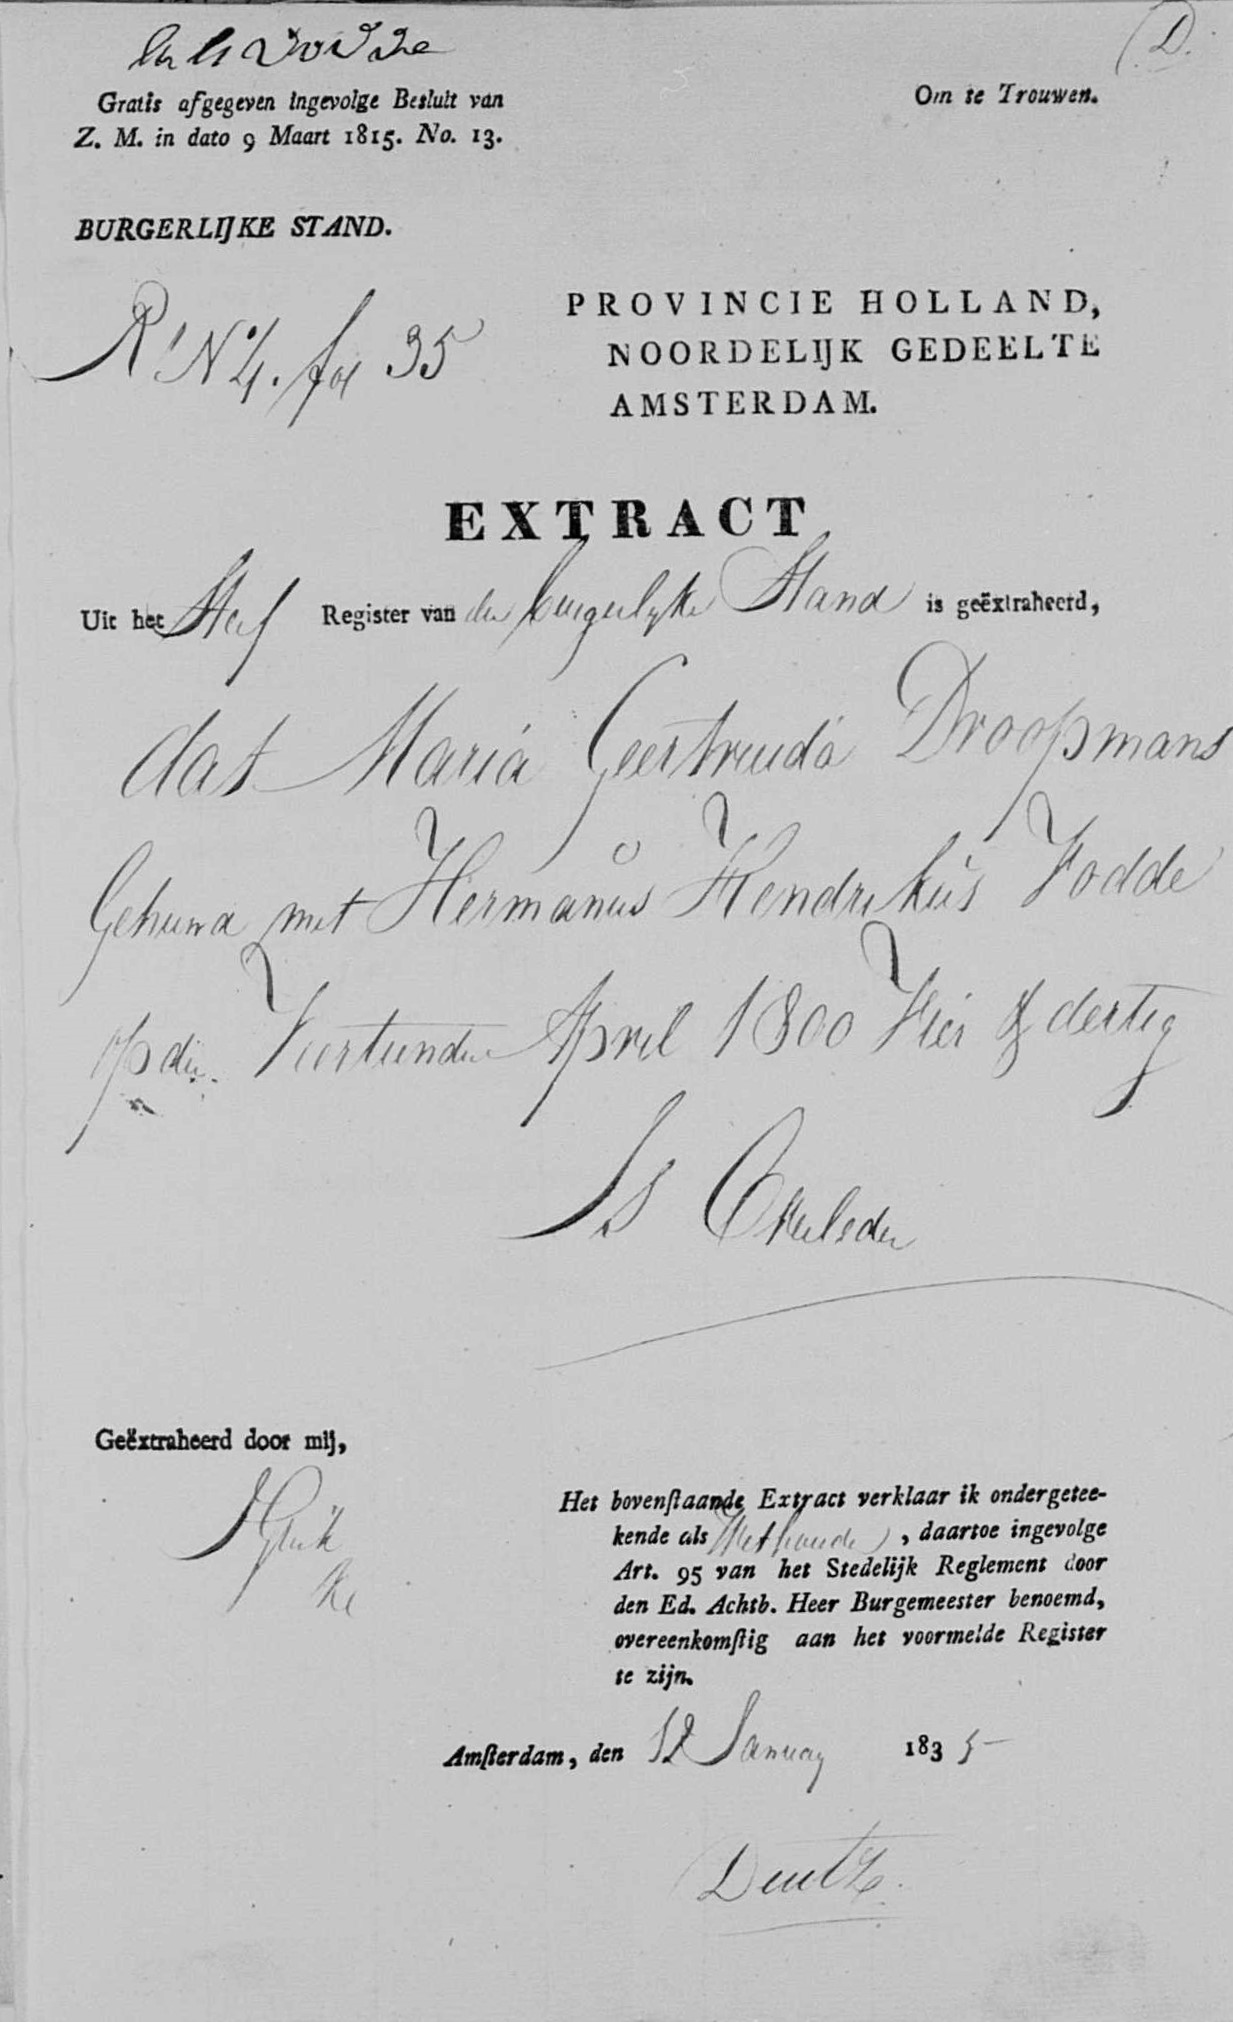 D.
Gratis afgegeven ingevolge Besluit van
Om te Trouwen.
Z. M. in dato 9 Maart 1815. No. 13.
BURGERLIJKE STAND.
PROVINCIE HOLLAND,
NOORDELIJK GEDEELTE
AMSTERDAM.
R N 4. fol 35
EXTRACT
Uit het Sterf Register van den burgerlyke Stand is geëxtraheerd,
dat Maria Geertruida Droopmans
Gehuwd met Hermanus Hendrikus Vodde
op den Veertienden April 1800 Vier & dertig
Is Overleden
Geëxtraheerd door mij,
Het bovenſtaande Extract verklaar ik ondergetee-
kende als Wethouder, daartoe ingevolge
Art. 95 van het Stedelijk Reglement door
den Ed. Achtb. Heer Burgemeester benoemd,
overeenkomſtig aan het voormelde Register
te zijn.
Amſterdam, den 12 January 1835
Deutz.